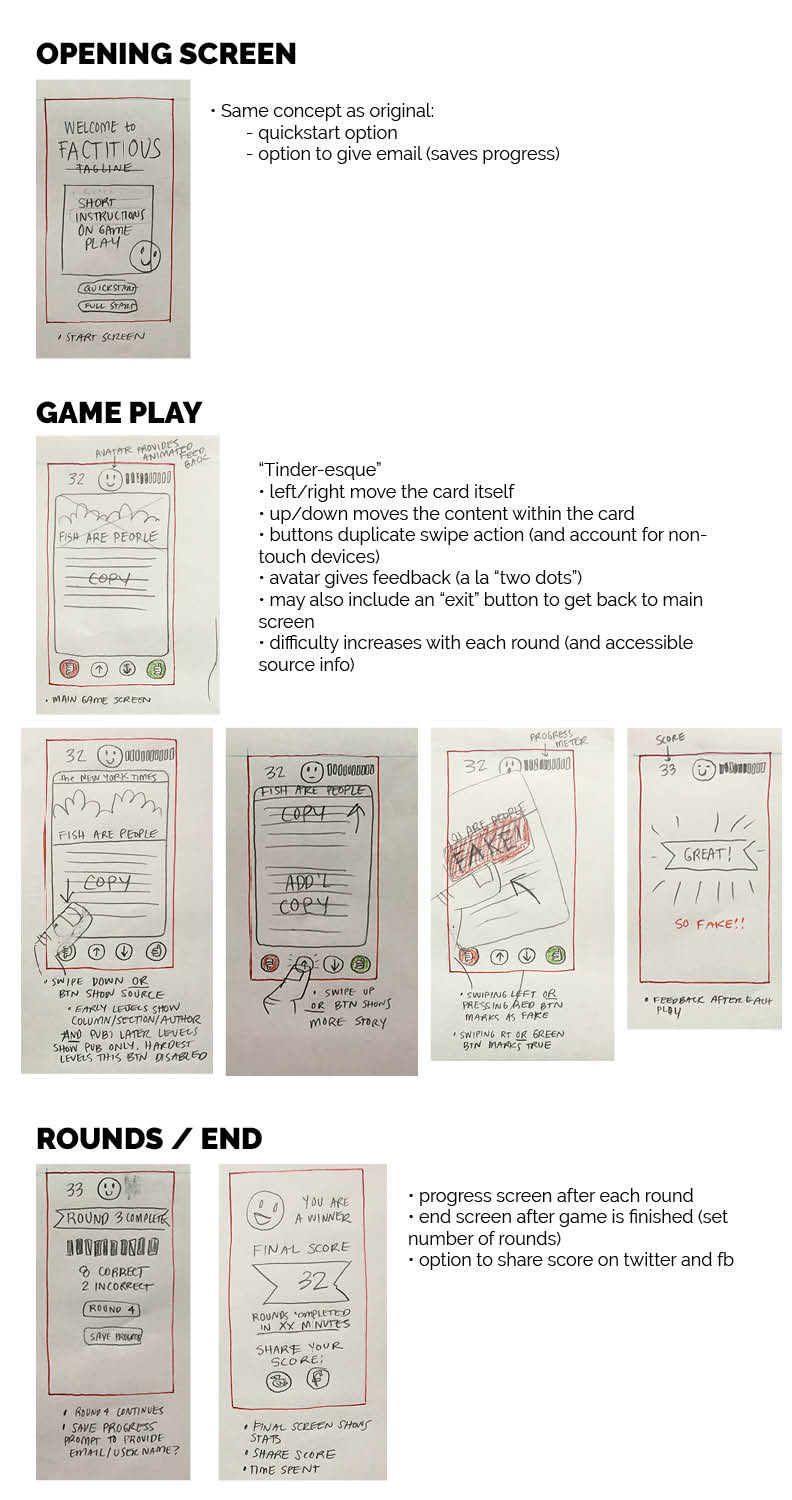 OPENING SCREEN
WELCOME to
FACTITIOUS
TAGLINE
SHORT
INSTRUCTIONS
ON GAME
PLAY
QUICKSTART
FULL START
• START SCREEN
• Same concept as original:
- quickstart option
- option to give email (saves progress)
GAME PLAY
AVATAR PROVIDES
ANIMATED
FEED
BACK
32
FISH ARE PEOPLE
COPY
• MAIN GAME SCREEN
“Tinder-esque”
• left/right move the card itself
• up/down moves the content within the card
• buttons duplicate swipe action (and account for non-
touch devices)
• avatar gives feedback (a la “two dots”)
• may also include an “exit” button to get back to main
screen
• difficulty increases with each round (and accessible
source info)
32
the NEW YORK TIMES
FISH ARE PEOPLE
COPY
• SWIPE DOWN OR
BTN SHOW SOURCE
• EARLY LEVELS SHOW
COLUMN/SECTION/AUTHOR
AND PUB) LATER LEVELS
SHOW PUB ONLY, HARDEST
LEVELS THIS BTN DISABLED
32
FISH ARE PEOPLE
COPY
ADD'L
COPY
• SWIPE UP
OR BTN SHOWS
MORE STORY
PROGRESS
METER
32
ARE PEOPLE
FAKE!
• SWIPING LEFT OR
PRESSING RED BTN
MARKS AS FAKE
• SWIPING RT OR GREEN
BTN MARKS TRUE
SCORE
33
GREAT!
SO FAKE!!
• FEEDBACK AFTER EACH
PLAY
ROUNDS / END
33
ROUND 3 COMPLETE
8 CORRECT
2 INCORRECT
ROUND 4
SAVE PROGRESS
• ROUND 4 CONTINUES
• SAVE PROGRESS
PROMPT TO PROVIDE
EMAIL/USER NAME?
YOU ARE
A WINNER
FINAL SCORE
32
ROUNDS COMPLETED
IN XX MINUTES
SHARE YOUR
SCORE:
• FINAL SCREEN SHOWS
STATS
• SHARE SCORE
• TIME SPENT
• progress screen after each round
• end screen after game is finished (set
number of rounds)
• option to share score on twitter and fb